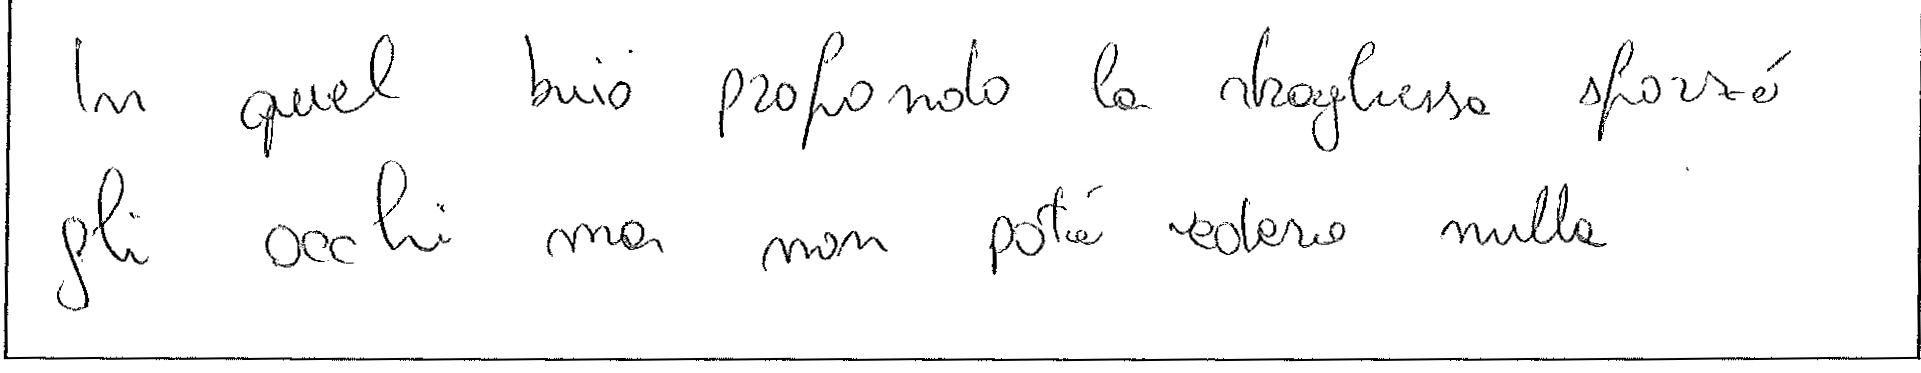 In quel buio profondo la streghessa sforzó
gli occhi ma non poté vedere nulla